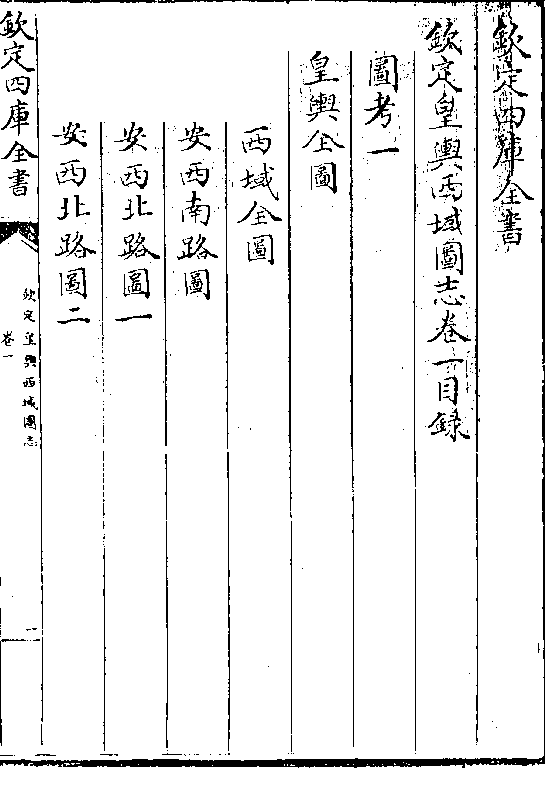 欽定四庫全書
欽定皇輿西域圖志卷一目録
圖考一
皇輿全圖
西域全圖
安西南路圖
安西北路圖一
安西北路圖二
欽定四庫全書
欽定皇輿西域圖志
卷一
一